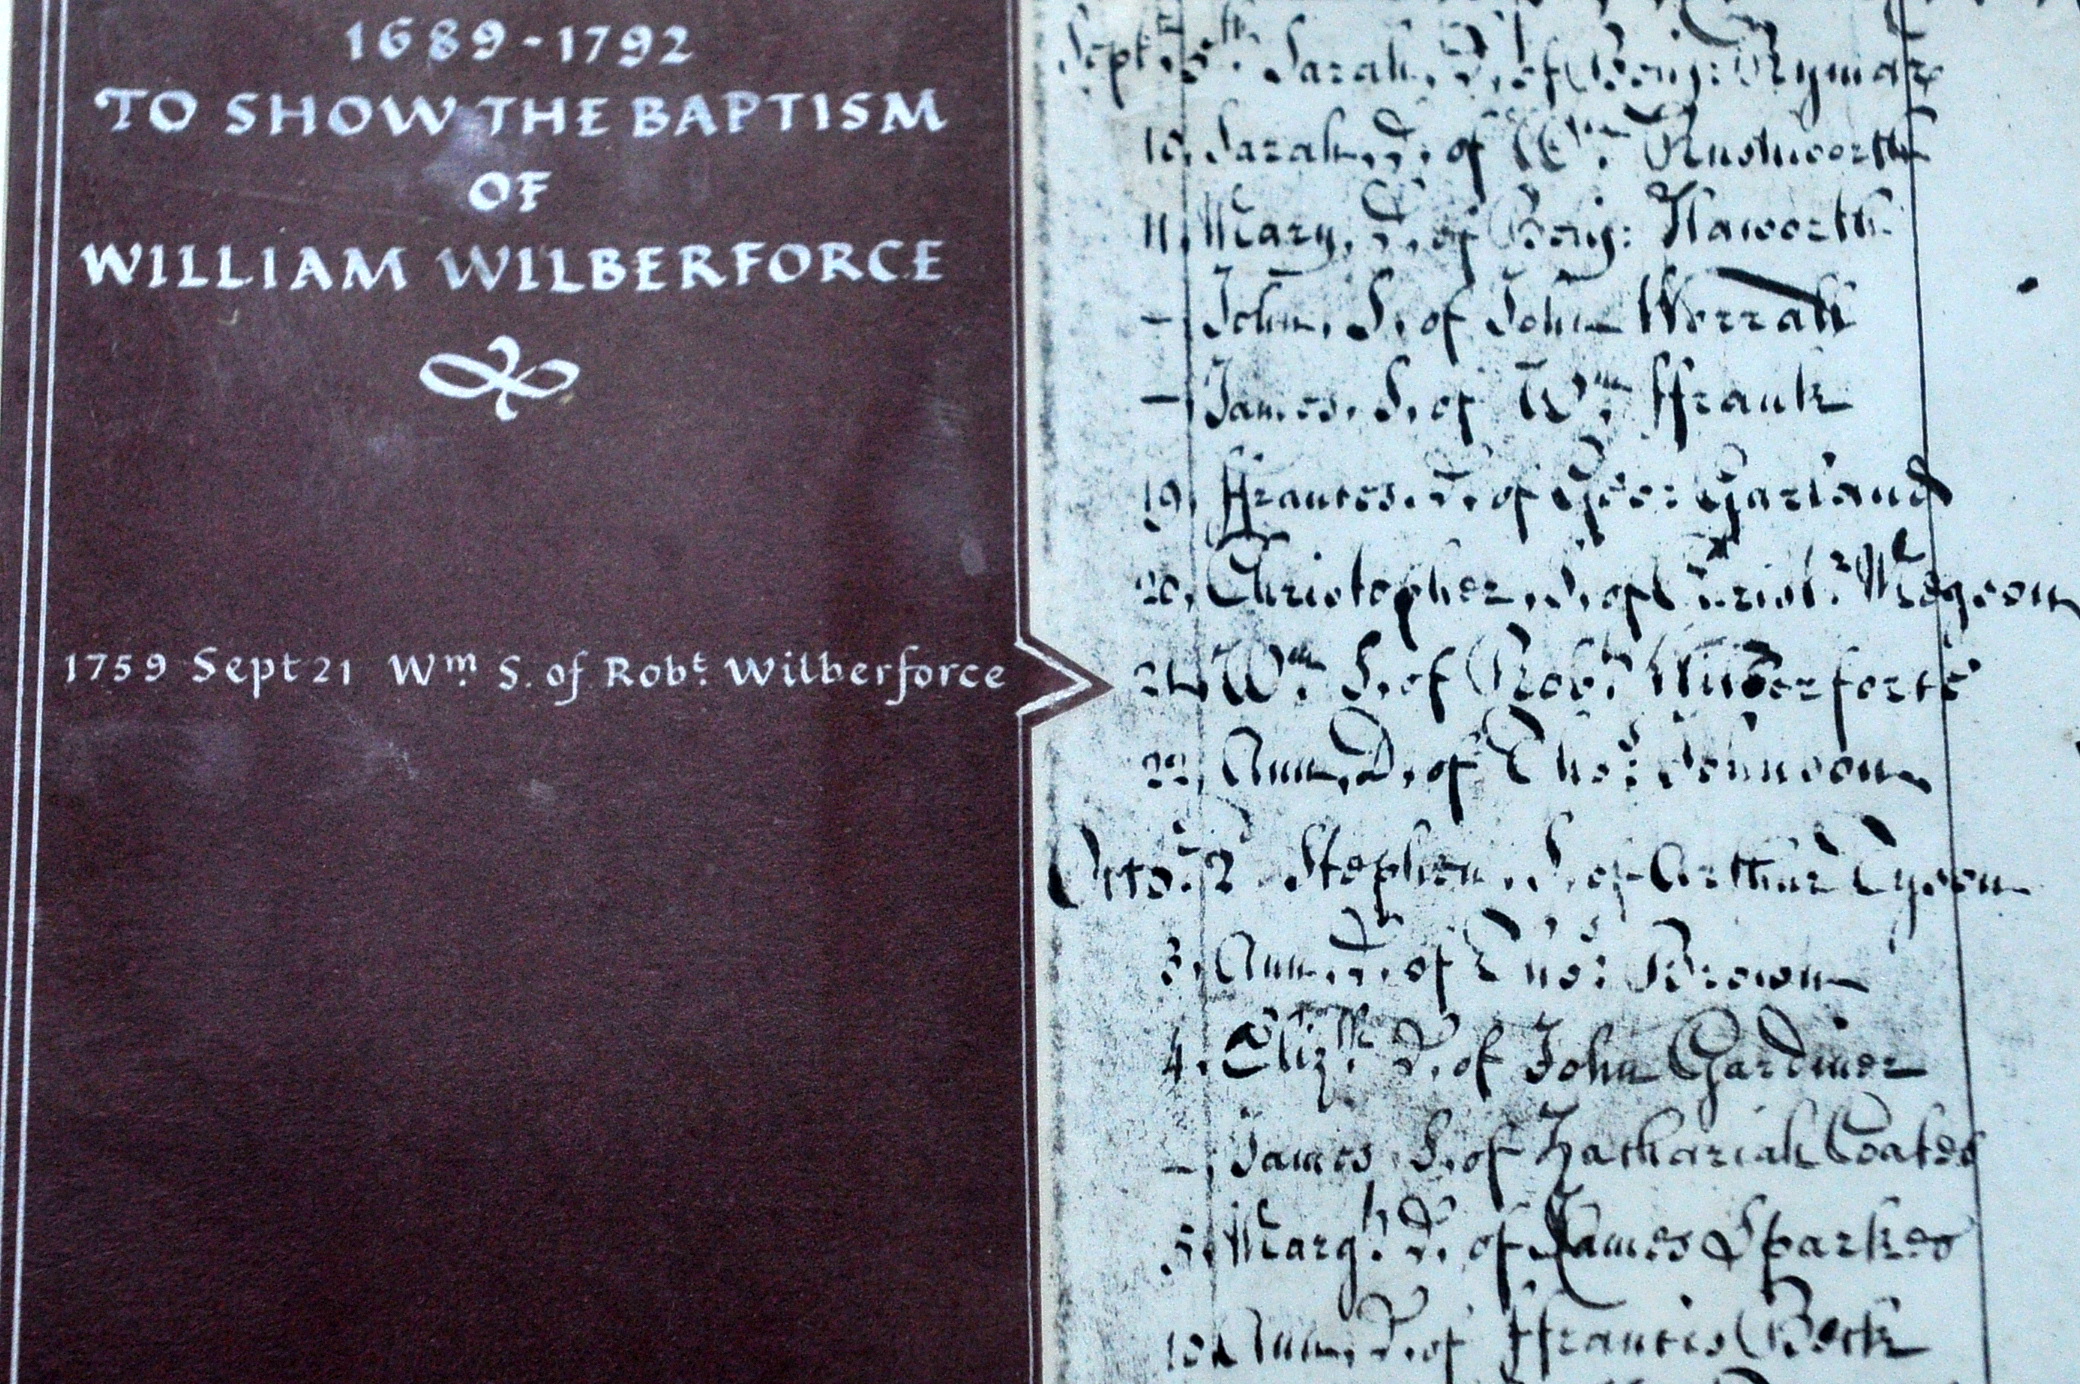 1689-1792
TO SHOW THE BAPTISM
OF
WILLIAM WILBERFORCE
1759 Sept 21 Wm. S. of Robt. Wilberforce
Septr. 5th. Sarah, D, of Benj: Rymar
10, Sarah, D, of Wm. Rushworth
11, Mary, D, of Benj: Haworth
–, John, S, of John Worrall
–, James, S, of Wm. ffrank
19, ffrances, D, of Geo: Garland
20, Christopher, S, of
21, Wm. S, of Robt. Wilberforce
22, Ann, D, of Thos: Johnson
Octor. 2 Stephen, S, of Arthur Tyson
3, Ann, D, of Thos: Brown
4, Elizth. D, of John Gardiner
–, James, S, of Zachariah Coates
5, Margt. D, of James Sparkes
10, Ann, D, of ffrancis Beck